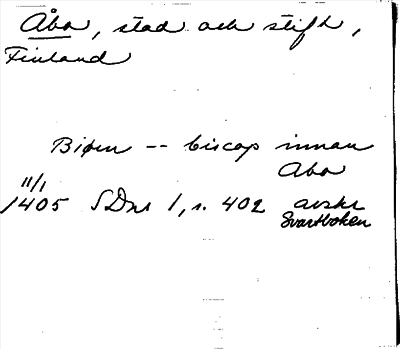 Åbo, stad och stift,
Finland
Biørn -- biscop innan
Abo
11/1
1405 SDns 1, s. 402 avskr
Svartboken